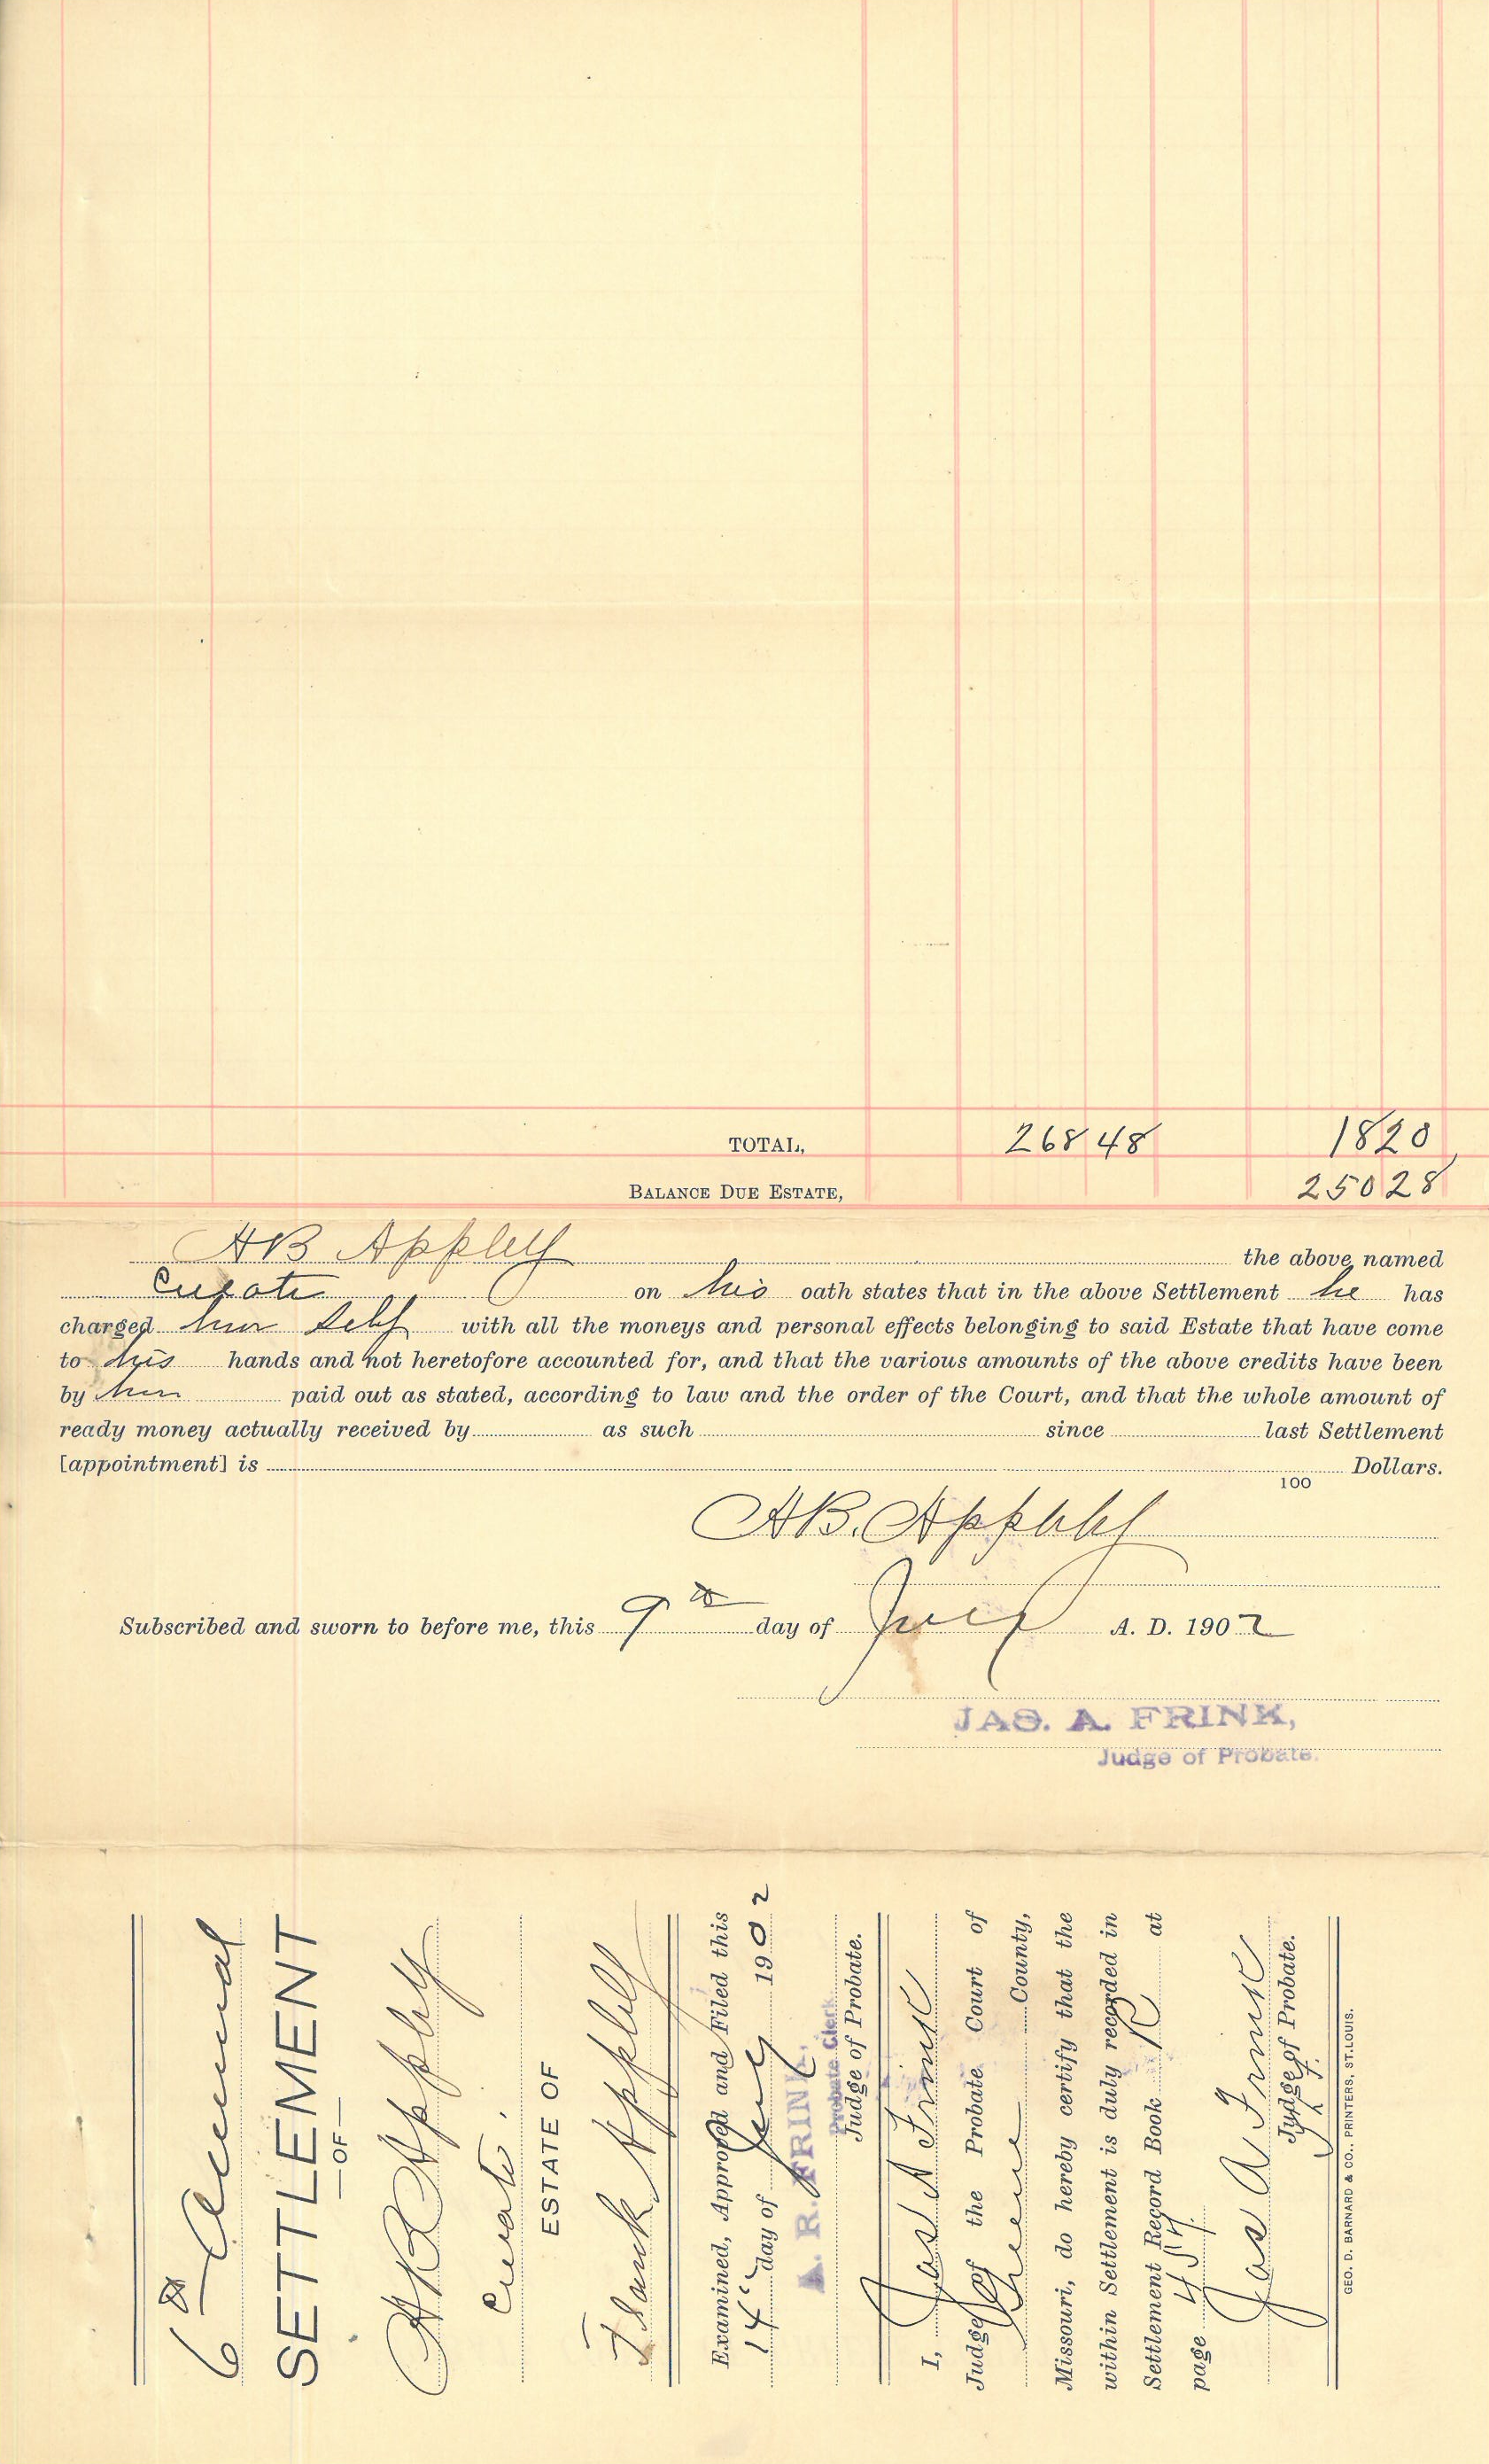 TOTAL, 268 48 18 20
BALANCE DUE ESTATE, 250 28
AB Appleby the above named
Curator on his oath states that in the above Settlement he has
charged him self with all the moneys and personal effects belonging to said Estate that have come
to his hands and not heretofore accounted for, and that the various amounts of the above credits have been
by him paid out as stated, according to law and the order of the Court, and that the whole amount of
ready money actually received by as such since last Settlement
[appointment] is 100 Dollars.
AB. Appleby
Subscribed and sworn to before me, this 9th day of July A. D. 1902
JAS. A. FRINK,
Judge of Probate.
6th Annual
SETTLEMENT
—OF—
AB Appleby
Curator
ESTATE OF
Frank Appleby
Examined, Approved and Filed this
14" day of July 1902
A. R. FRINK,
Probate Clerk
Judge of Probate.
I, Jas A Frink
Judge of the Probate Court of
Greene County,
Missouri, do hereby certify that the
within Settlement is duly recorded in
Settlement Record Book R at
page 454.
Jas A Frink
Judge of Probate.
GEO. D. BARNARD & CO., PRINTERS, ST. LOUIS.